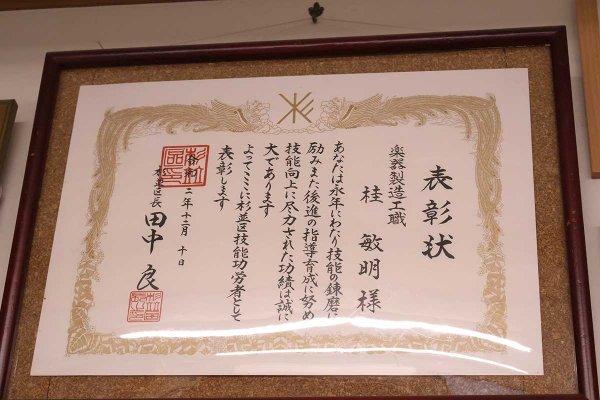 表彰状
楽器製造工職
桂 敏明 様
あなたは永年にわたり技能の錬磨に
励みまた後進の指導育成に努め
技能向上に尽力された功績は誠に
大であります
よってここに杉並区技能功労者として
表彰します
令和二年十二月十日
杉並区長 田中 良